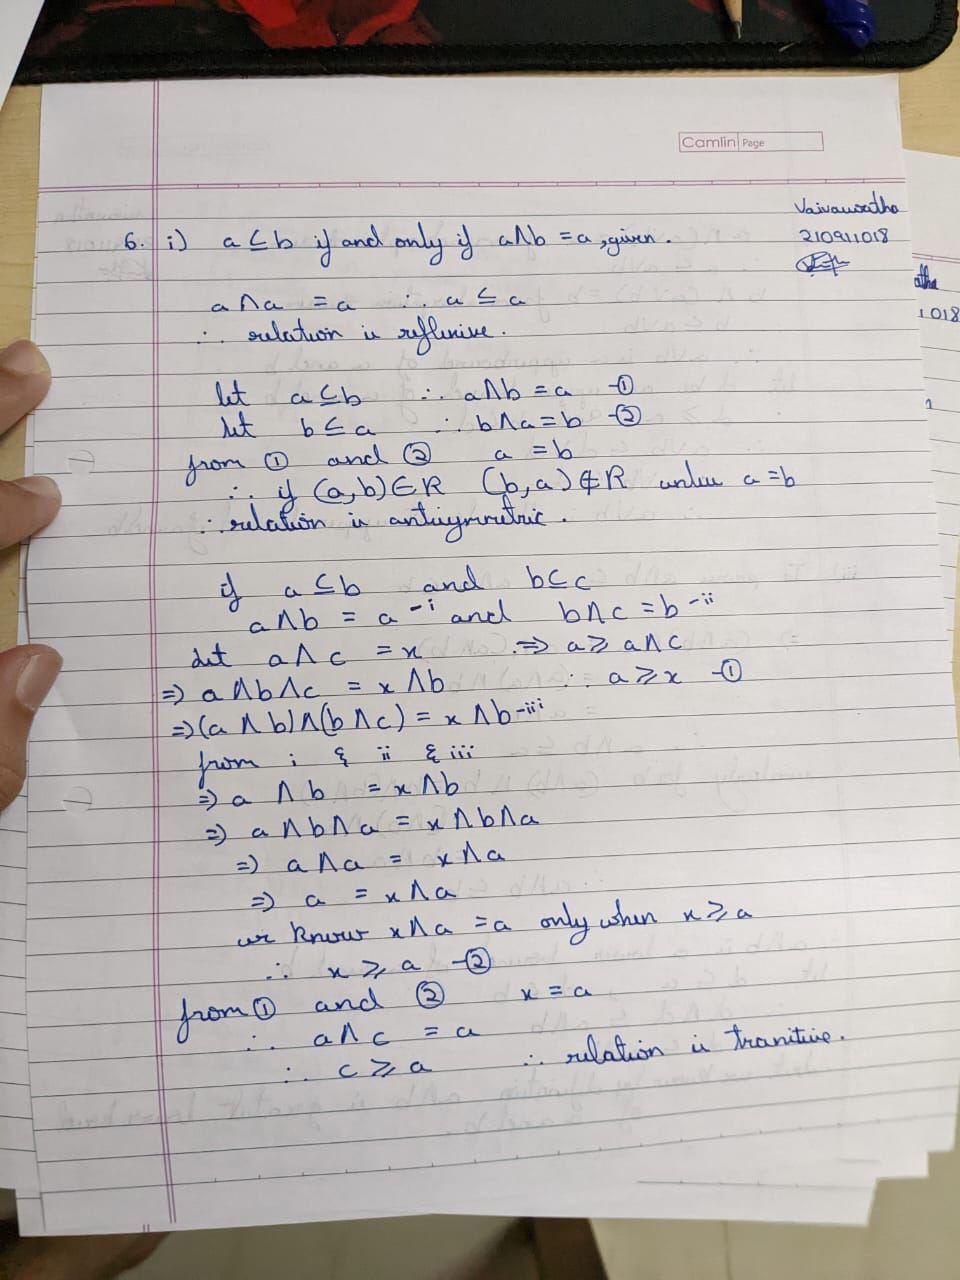 Camlin Page
Vaivaswatha
210911018
6. i) a ≤ b if and only if a∧b = a, given.
a ∧ a = a ∴ a ≤ a
∴ relation is reflexive.
let a ≤ b ∴ a∧b = a -①
let b ≤ a ∴ b∧a = b -②
from ① and ② a = b
∴ if (a,b)∈R (b,a)∉R unless a=b
∴ relation is antisymmetric.
if a ≤ b and b ≤ c
a∧b = a -i and b∧c = b -ii
let a∧c = x ⇒ a ≥ a∧c
⇒ a∧b∧c = x∧b ∴ a ≥ x -①
⇒ (a∧b)∧(b∧c) = x∧b -iii
from i & ii & iii
⇒ a ∧ b = x∧b
⇒ a∧b∧a = x∧b∧a
⇒ a∧a = x∧a
⇒ a = x∧a
we know x∧a = a only when x ≥ a
∴ x ≥ a -②
from ① and ② x = a
∴ a∧c = a
∴ c ≥ a ∴ relation is tranitive.
018